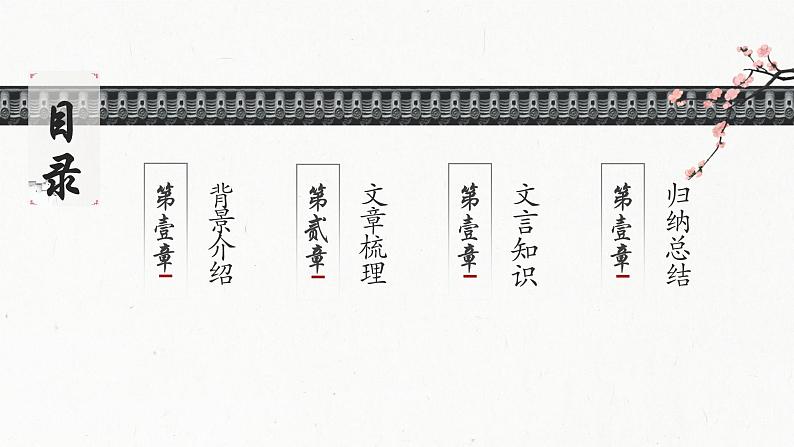 目录
第壹章
背景介绍
第贰章
文章梳理
第壹章
文言知识
第壹章
归纳总结